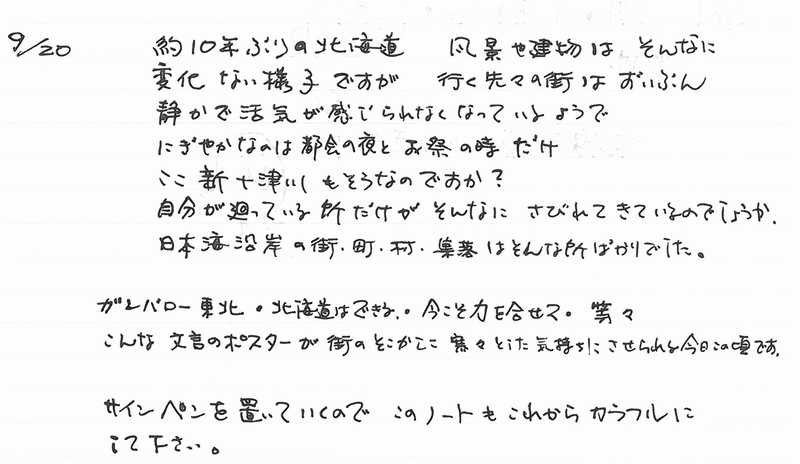 9/20 約10年ぶりの北海道 風景や建物は そんなに
変化 ない様子ですが 行く先々の街は ずいぶん
静かで活気が感じられなくなっているようで
にぎやかなのは都会の夜とお祭の時だけ
ここ 新十津川もそうなのですか?
自分が廻っている所だけが そんなに さびれてきているのでしょうか.
日本海沿岸の街・町・村・集落はそんな所ばかりでした。
ガンバロー東北・北海道はできる・今こそ力を合せて・等々
こんな 文言のポスターが街のそこかしこに 寒々とした気持ちにさせられる今日この頃です.
サインペンを置いていくので このノートもこれからカラフルに
して下さい。